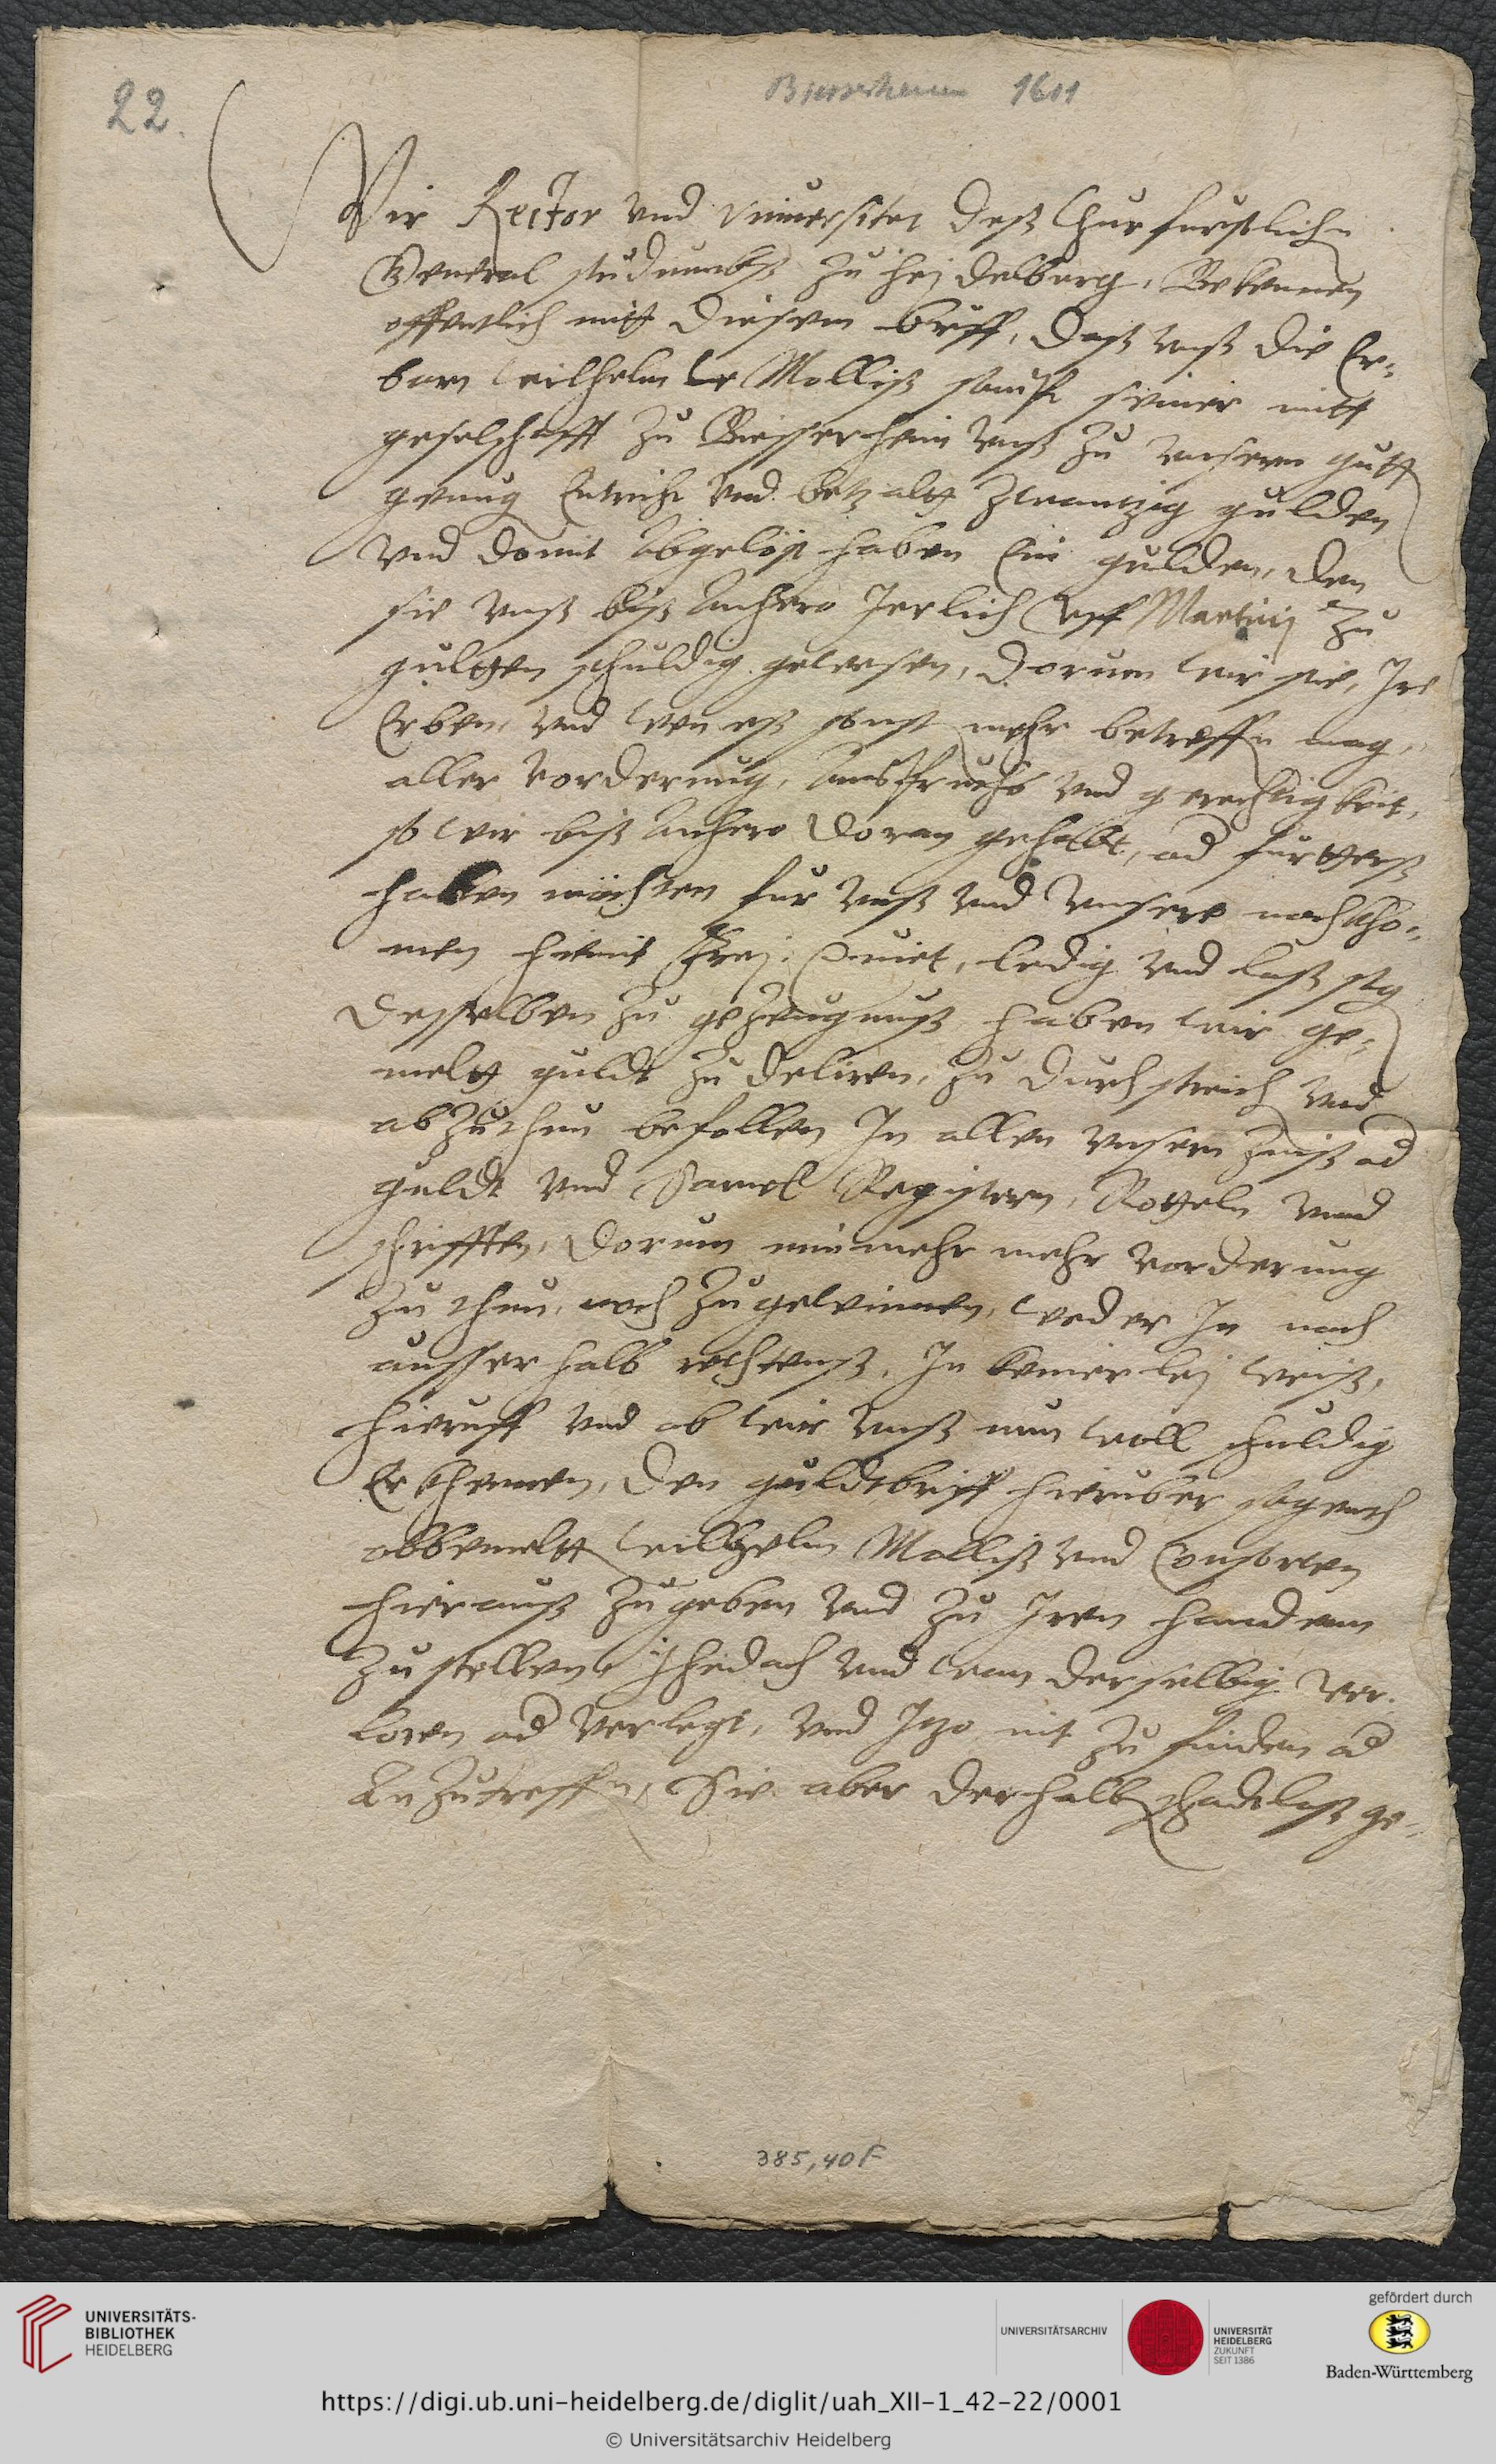 22.
Bisserheim 1601
Wir Rector vnd Vniuersitet deß Churfurstlichn
General studiumbß zu Heidelberg, Bekennen
offentlich mitt diesem brieff, daß vnß die Er-
barn Wilhelm Mollisz sampt seiner mitt
geselschafft zu Biesserheim vnß zu vnserm gutt
genug Entricht vnd betzaltt zwantzig gulden
vnd domit Abgelöst haben Ein gulden, den
sie vnß biß Anhero Jerlich Vff Martinj zu
gultten schuldig gewesen, dorum wir sie, Ire
Erben, vnd wen eß sonst mehr betreffn mag,
aller vorderung, Anspruchs vnd gerechtigkeit,
so wir biß Anhero doran gehabt, od furtterß
haben möchten fur vnß vnd vnsere nachkho-
men hiemit frej, Quiet, ledig vnd loß sag
desselben zu gezeugnuß haben wir ge-
meltt guldt zu deliren, zu durchstreich vnd
abzuthun befollen In allen vnsern Zinß od
guldt vnd Samel Registern, Rotteln vnnd
schrifften, dorum nimmehr mehr vorderung
zu thun, noch zugewinnen, weder In noch
ausserhalb rechtenß, In keinerlej weiß,
hieruff vnd ob wir vnß nun woll schuldig
Erkhennen, den guldtbrieff hieruber sagendt
obbemeltt Wilhelm Mollisz vnd Consorten
hierauß zugeben vnd zu Iren handenn
zustellen, Jhedoch vnd wan derselbig ver-
loren od verlegt, vnd Itzo nit zu finden od
Anzutreffn, Sie aber derhalb schadtloß ge-
385,40F
UNIVERSITÄTS-
BIBLIOTHEK
HEIDELBERG
UNIVERSITÄTSARCHIV
UNIVERSITÄT
HEIDELBERG
ZUKUNFT
SEIT 1386
gefördert durch
Baden-Württemberg
https://digi.ub.uni-heidelberg.de/diglit/uah_XII-1_42-22/0001
© Universitätsarchiv Heidelberg